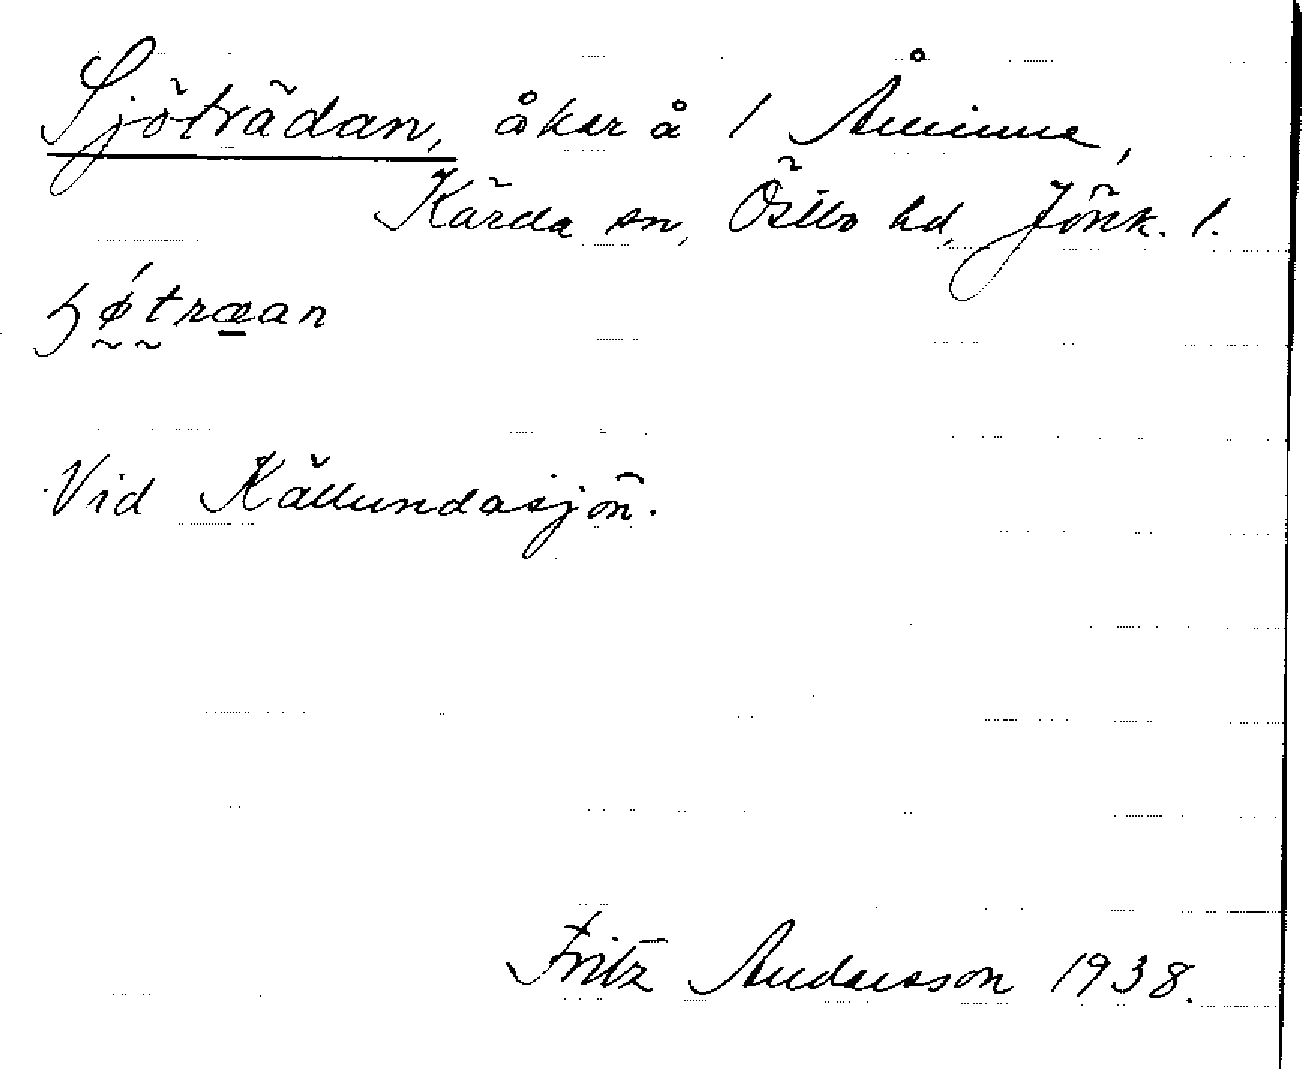 Sjöträdan, åker å 1 Åminne,
Kärda sn, Östbo hd, Jönk. l.
ɧǿtræan
Vid Källundasjön.
Fritz Andersson 1938.